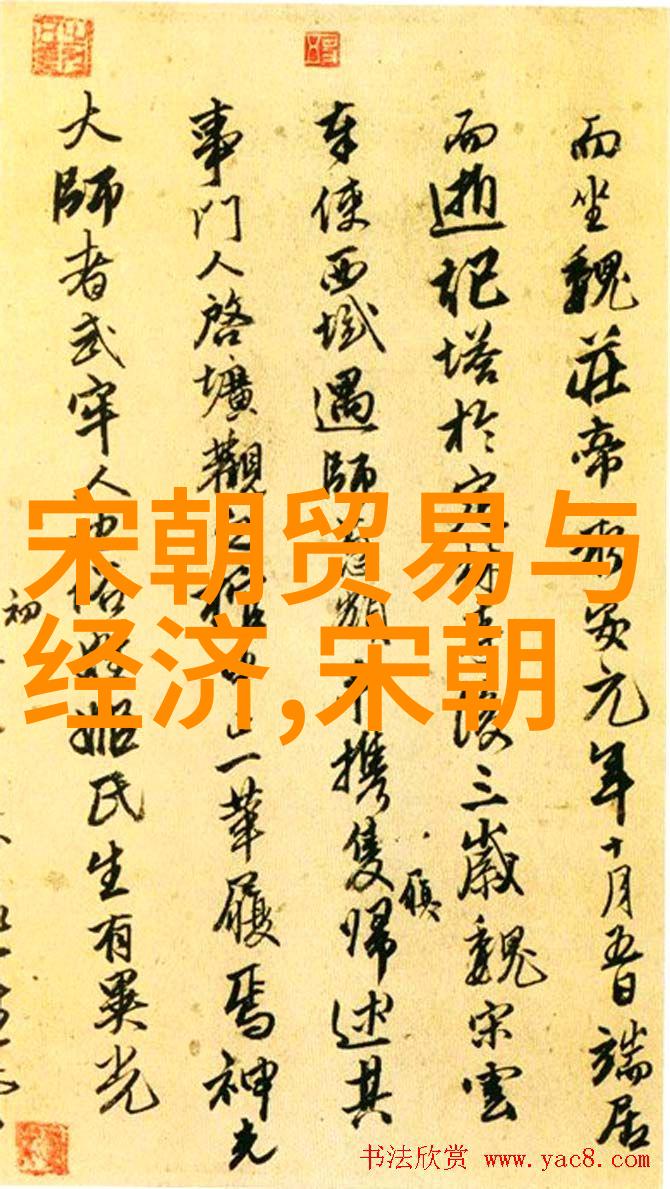 而坐魏莊帝永安元年十月五日端居
而逝記塔於定林後三歲魏宋雲
奉使西域遇師葱嶺手攜隻歸述其
履
事門人啓壙觀之一革履焉神光
大師者武牢人也俗姓姬氏生有異光
初
宋朝贸易与
经济,宋朝
书法欣赏 www.yac8.com